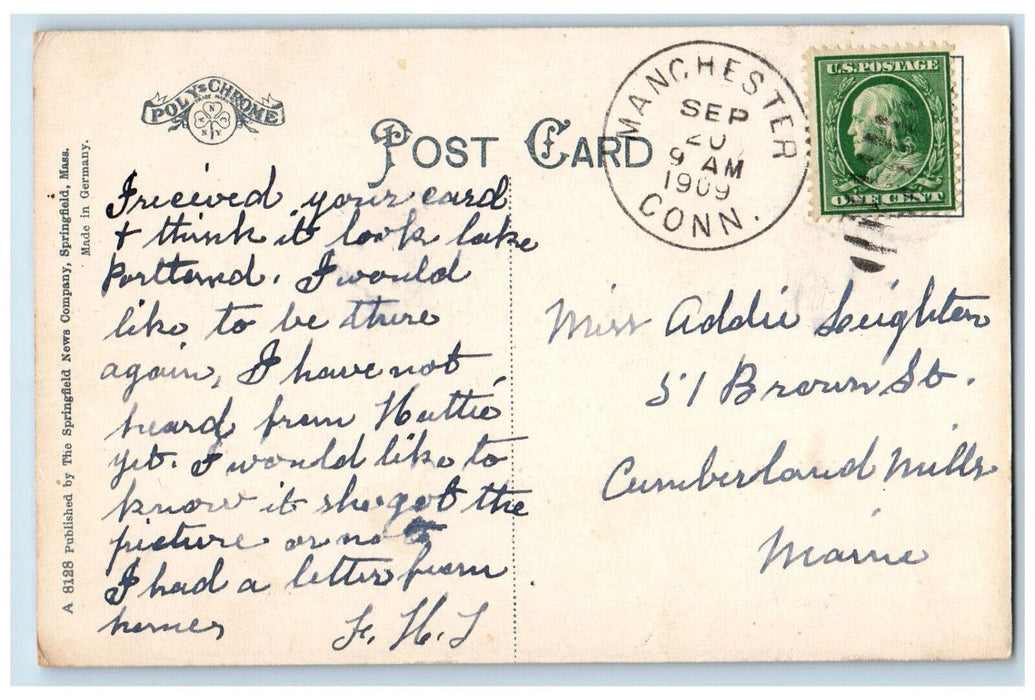 POLY-CHROME
POST CARD
MANCHESTER
SEP
20
9 AM
1909
CONN.
U.S. POSTAGE
ONE CENT
A 8128 Published by The Springfield News Company, Springfield, Mass.
Made in Germany.
I recieved your card
+ think it look lake
Portland. I would
like to be there
again, I have not
heard from Hattie
yet. I would like to
know it she got the
picture or not
I had a letter from
home,
F. H. L
Miss Addie Leighton
51 Brown St.
Cumberland Mills
Maine